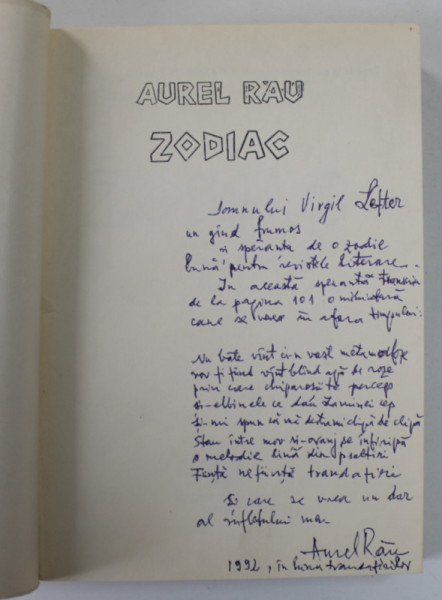 AUREL RĂU
ZODIAC
Domnului Virgil Lefter
un gînd frumos
și speranța de o zodie
bună pentru revistele literare...
În această speranță
de la pagina 101 o miniatură
care se vrea în afara timpului:
Nu bate vînt
vînt blînd de roze
prin care chiparosii te percep
și-albinele ce dau luminei cep
Și-mi spun că mă destrami clipă de clipă
Stau între mov și-oranj se înfiripă
o melodie lină din psaltiri
Ființă neființă trandafiri
Și care se vrea un dar
al sufletului meu
Aurel Rău
1992, în luna trandafirilor